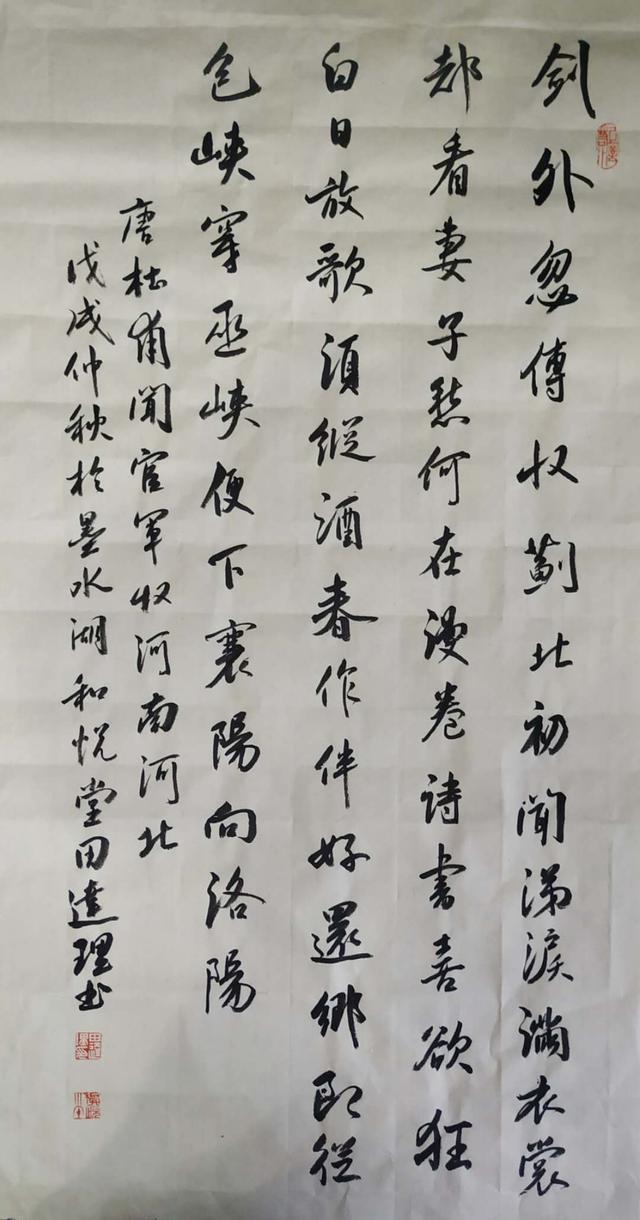 剑外忽傳收薊北初聞涕淚滿衣裳
却看妻子愁何在漫卷诗書喜欲狂
白日放歌須縱酒春作伴好還鄉即從
巴峽穿巫峽便下襄陽向洛陽
唐杜甫聞官軍收河南河北
戊戌仲秋於墨水湖和悦堂田達理书